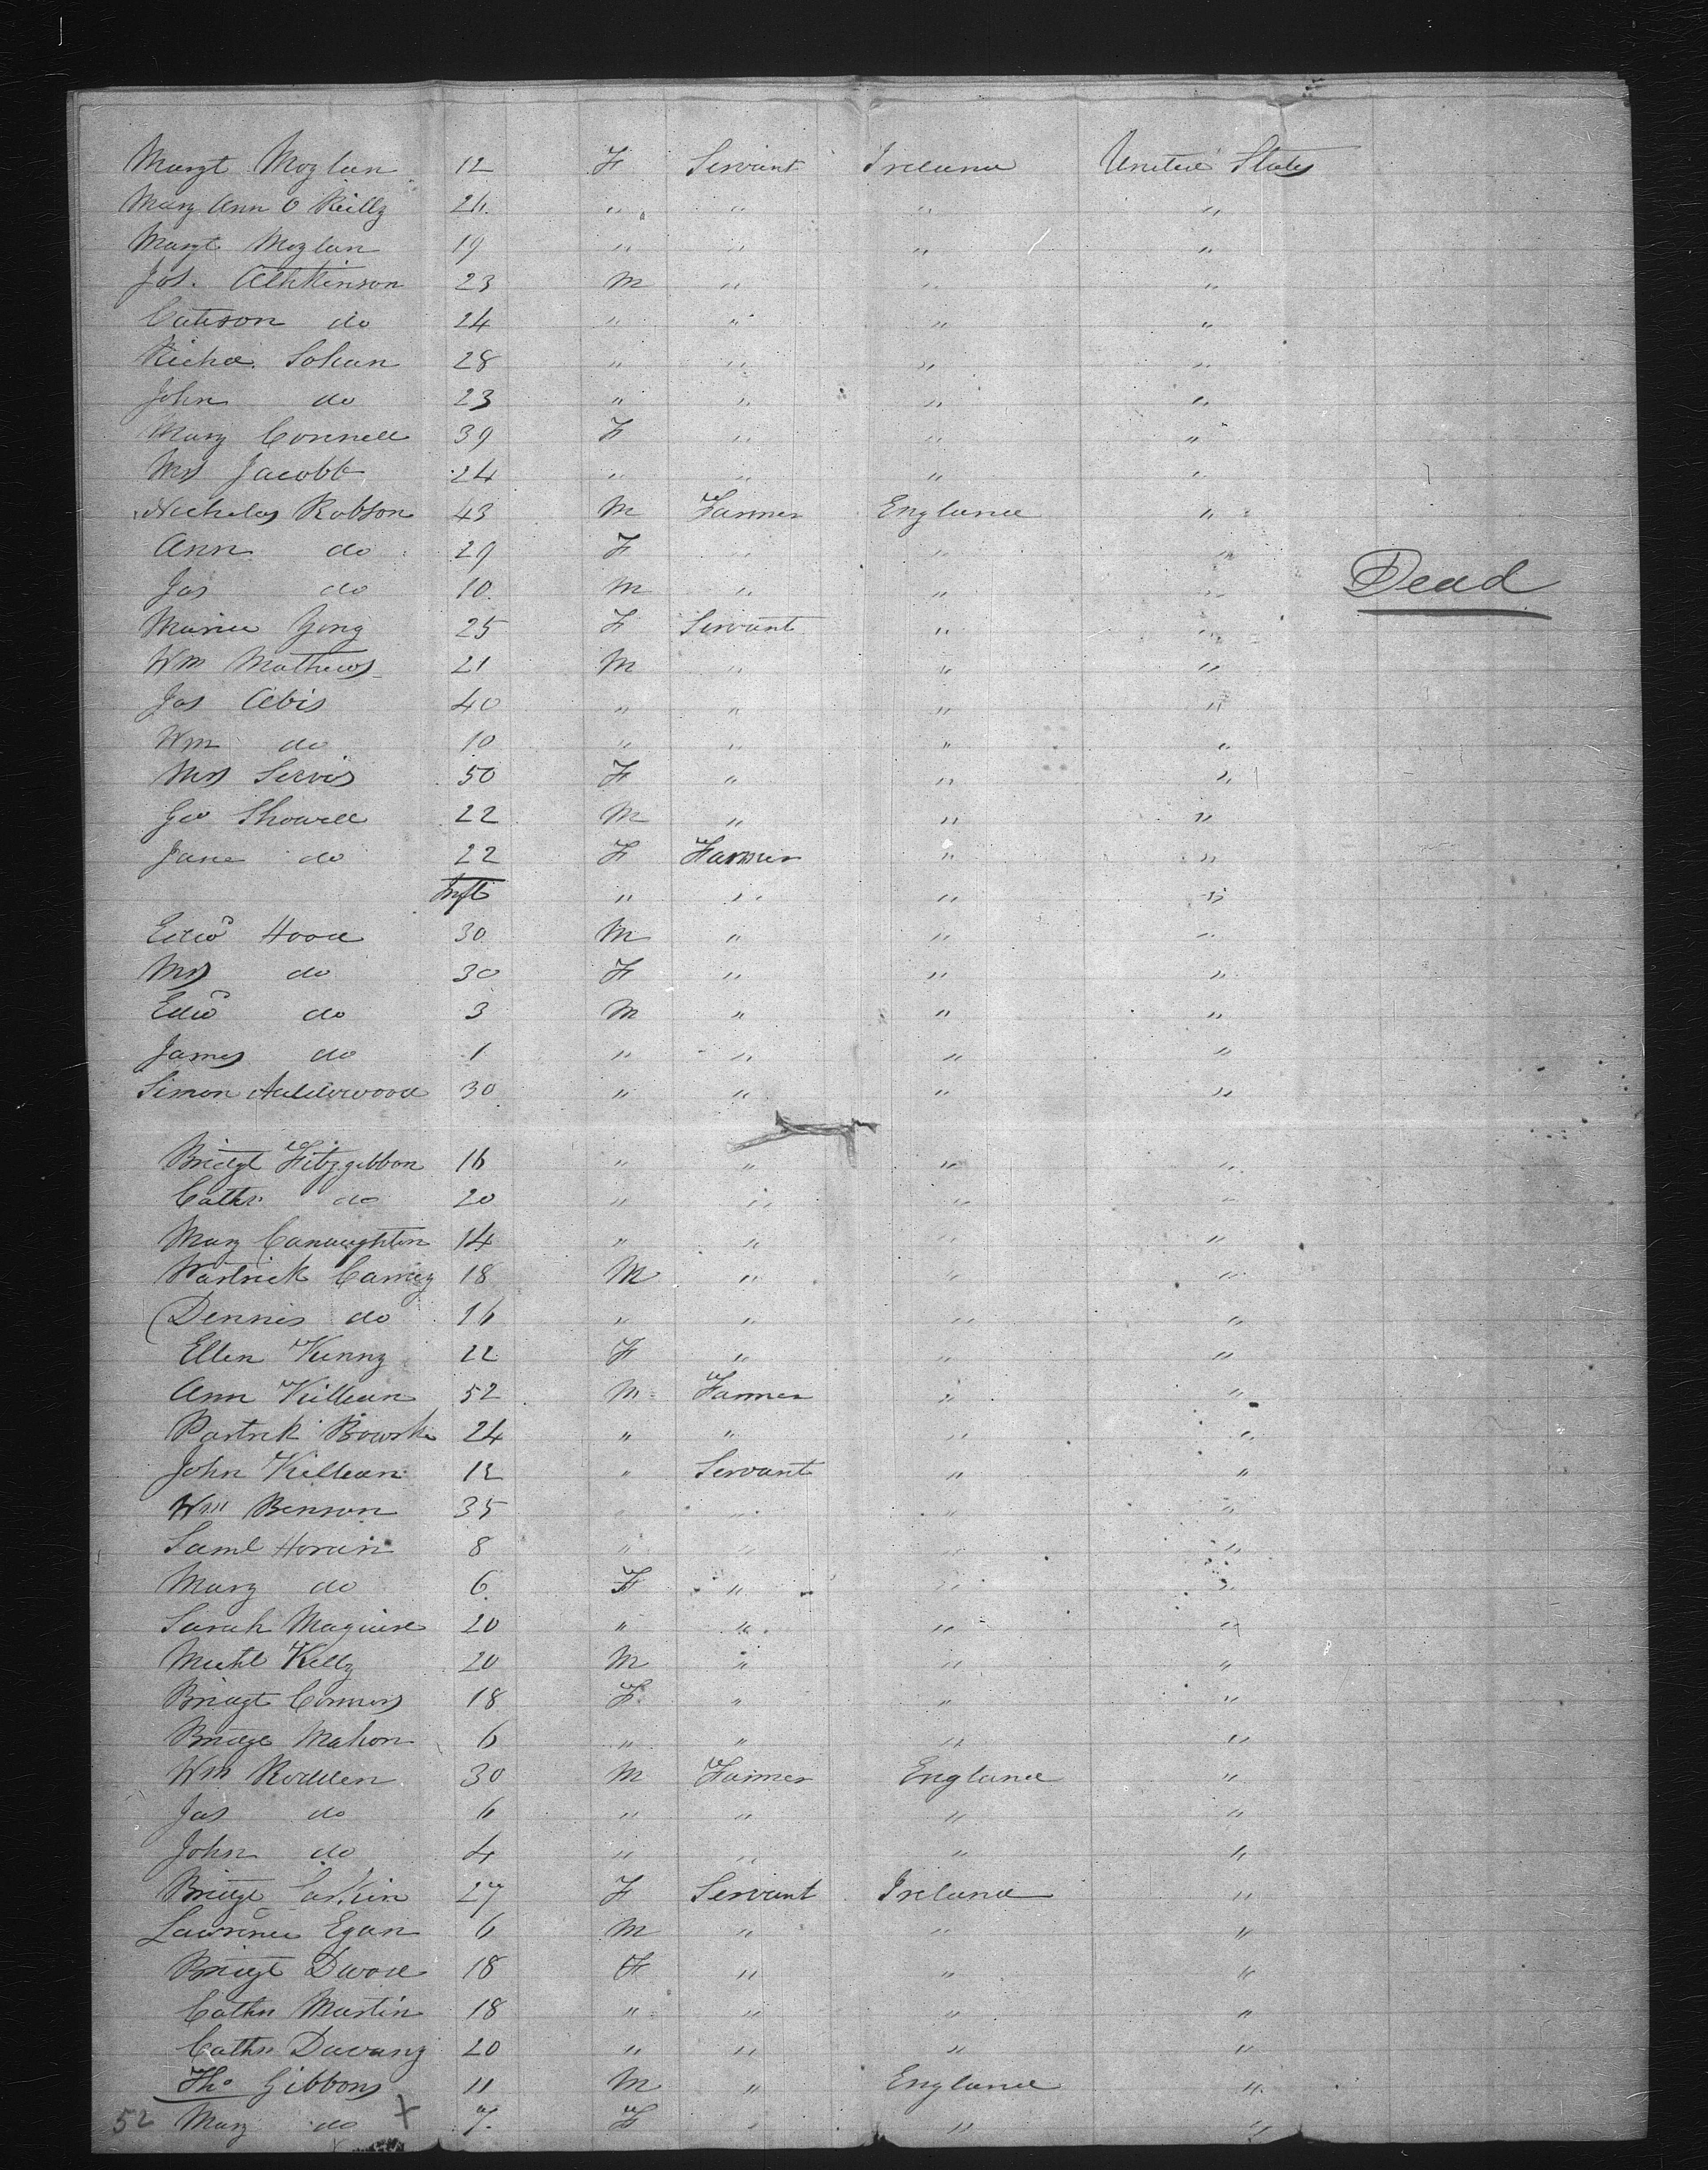 Margt Moylan 12 F Servant Ireland United States
Mary Ann O Reilly 26 " " " "
Margt Moylan 19 " " " "
Jos. Athkinson 23 M " " "
Cateson do 24 " " " "
Richd. Sohan 28 " " " "
John do 23 " " " "
Mary Connell 39 F " " "
Mrs Jacobb 24 " " " "
Nicholas Robson 43 M Farmer England "
Ann do 29 F " " "
Jas do 10 M " " " Dead
Maria Gong 25 F Servant " "
Wm Mathews 21 M " " "
Jas Abis 40 " " " "
Wm do 10 " " " "
Mrs Servis 50 F " " "
Geo Showell 22 M " " "
Jane do 22 F Farmer " "
Inft " " " "
Edwd Hood 30 M " " "
Mrs do 30 F " " "
Edwd do 3 M " " "
James do 1 " " " "
Simon Aulderwood 30 " " " "
Bridgt Fitzgibbon 16 " " " "
Cathn do 20 " " " "
Mary Canaughton 14 " " " "
Partrick Carney 18 M " " "
Dennis do 16 " " " "
Ellen Kenny 22 F " " "
Ann Killean 52 M Farmer " "
Partrik Bowrke 24 " " " "
John Killean 12 " Servant " "
Wm Benson 35 " " "
Saml Horan 8 " " " "
Mary do 6 F " " "
Sarah Maguire 20 " " " "
Michl Kelly 20 M " " "
Bridgt Connors 18 F " " "
Bridgt Mahon 6 " " " "
Wm Rodden 30 M Farmer England "
Jas do 6 " " " "
John do 4 " " " "
Bridgt Larkin 27 F Servant Ireland "
Lawrence Egan 6 M " " "
Bridgt Dwod 18 F " " "
Cathn Martin 18 " " " "
Cathn Davany 20 " " " "
Tho Gibbons 11 M " England "
52 Mary do X 7 F " " "